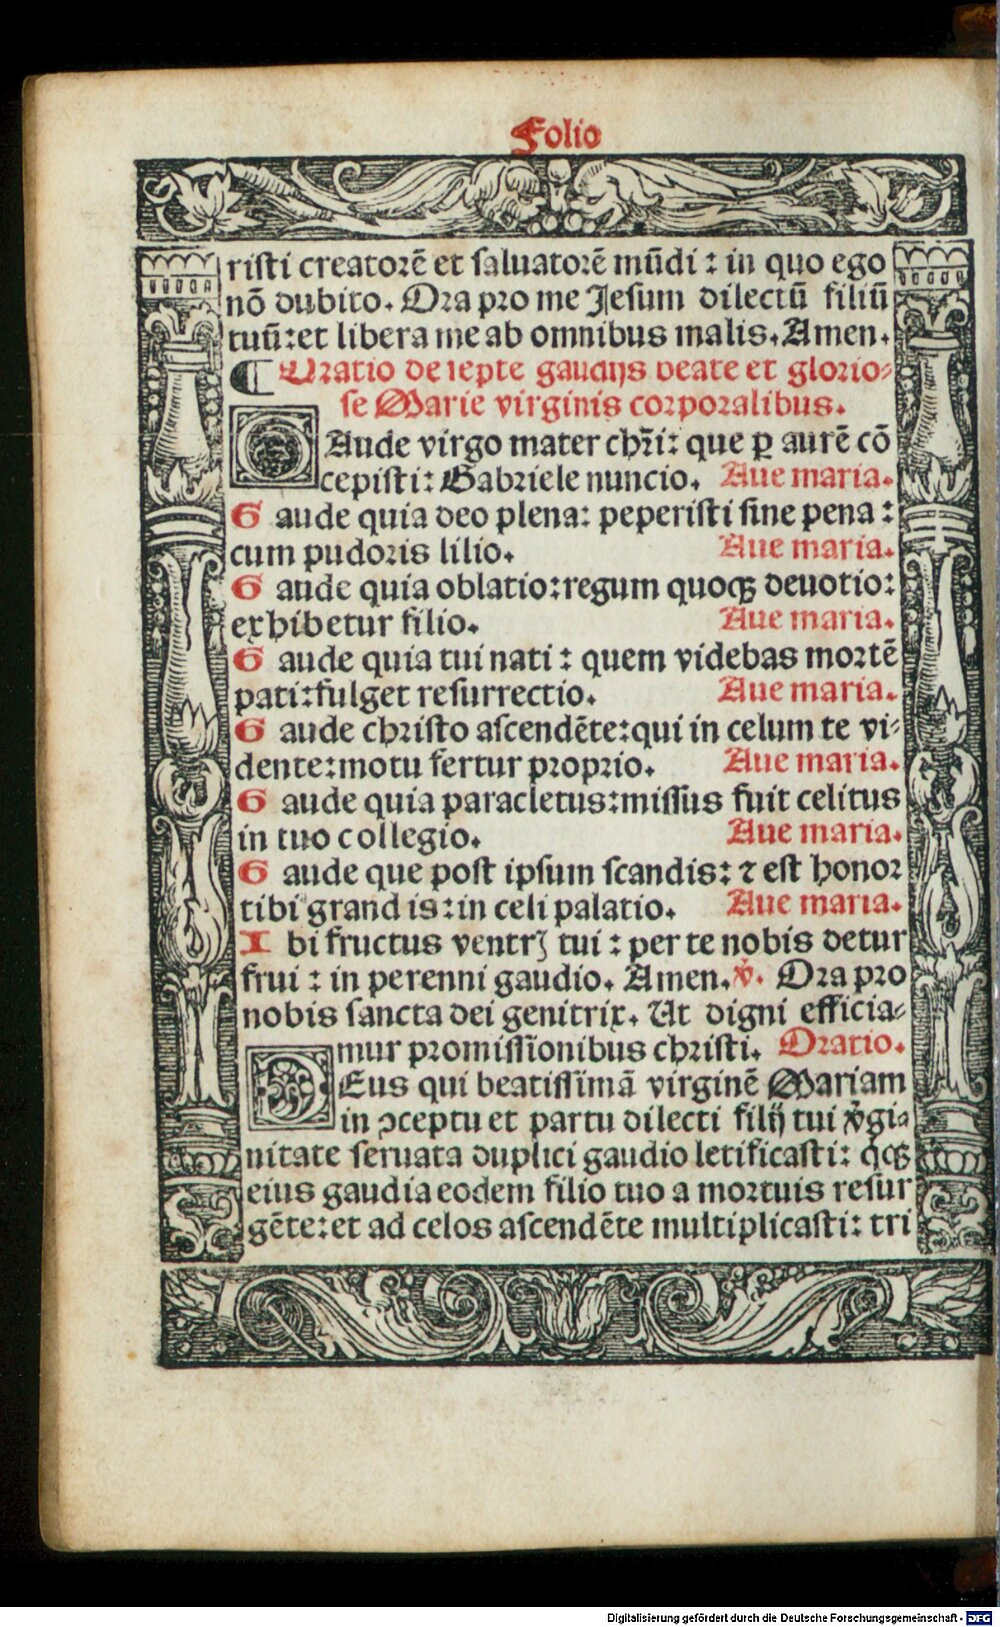 Folio
risti creatorē et saluatorē mūdi : in quo ego
nō dubito. Ora pro me Jesum dilectū filiū
tuū: et libera me ab omnibus malis. Amen.
¶ Oratio de septe gaudijs beate et glorio-
se Marie virginis corporalibus.
GAude virgo mater chr̄i: que ꝑ aurē cō
cepisti: Gabriele nuncio. Aue maria.
Gaude quia deo plena: peperisti sine pena :
cum pudoris lilio. Aue maria.
Gaude quia oblatio: regum quoqꝫ deuotio:
exhibetur filio. Aue maria.
Gaude quia tui nati : quem videbas mortē
pati: fulget resurrectio. Aue maria.
Gaude christo ascendēte: qui in celum te vi-
dente: motu fertur proprio. Aue maria.
Gaude quia paracletus: missus fuit celitus
in tuo collegio. Aue maria.
Gaude que post ipsum scandis: ⁊ est honor
tibi grandis: in celi palatio. Aue maria.
Ibi fructus ventrꝭ tui : per te nobis detur
frui : in perenni gaudio. Amen. ℣. Ora pro
nobis sancta dei genitrix. Ut digni efficia-
mur promissionibus christi. Oratio.
DEus qui beatissimā virginē Mariam
in ↄceptu et partu dilecti filij tui v̓gi-
nitate seruata duplici gaudio letificasti: qͥqꝫ
eius gaudia eodem filio tuo a mortuis resur
gēte: et ad celos ascendēte multiplicasti: tri
Digitalisierung gefördert durch die Deutsche Forschungsgemeinschaft - DFG